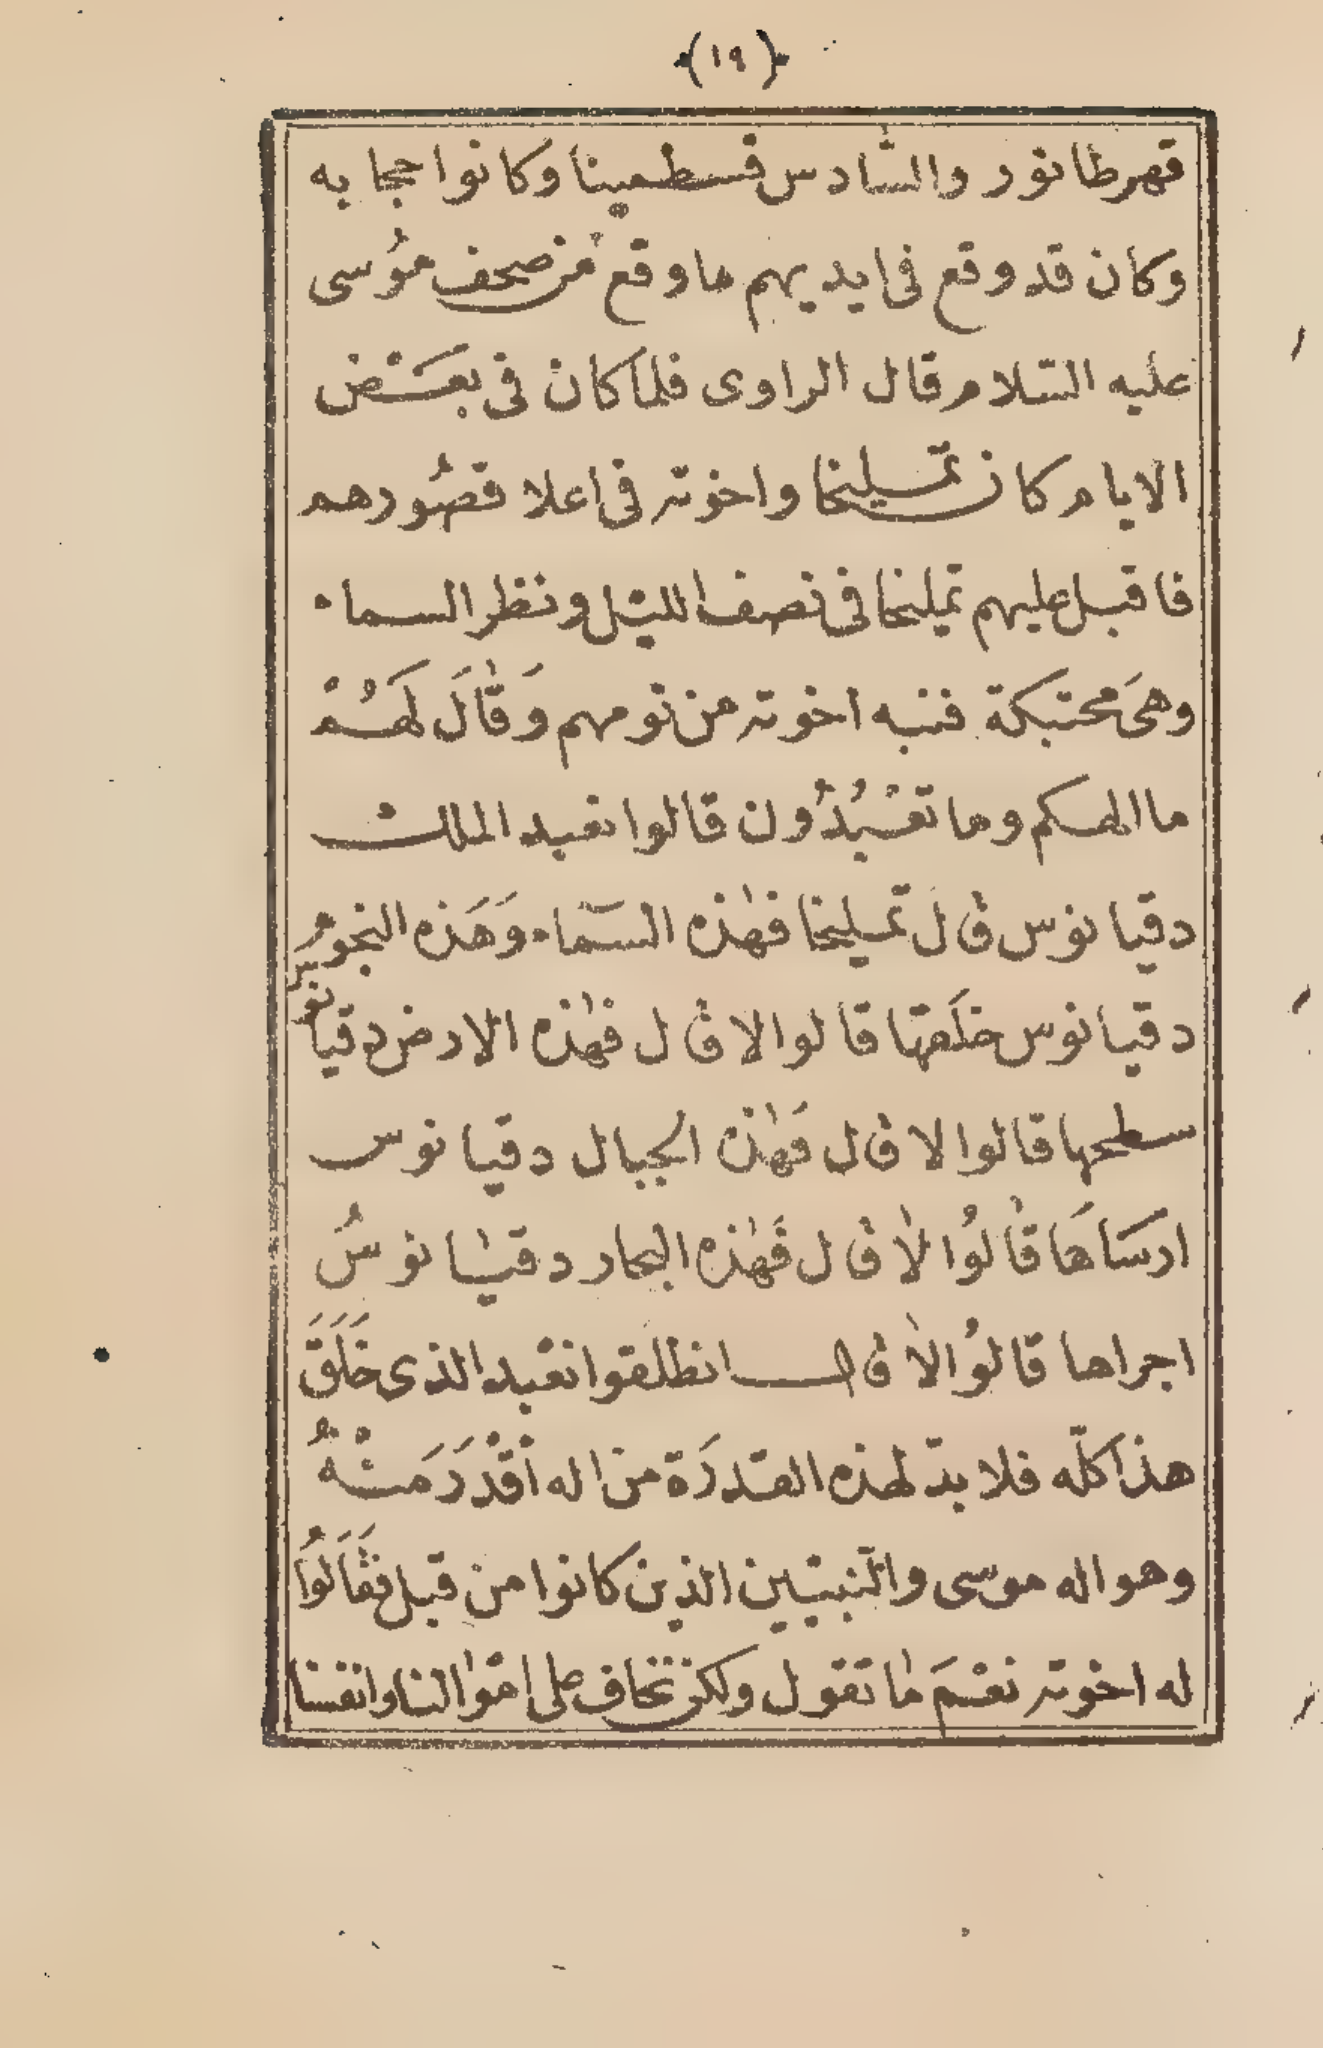 (١٩)
قهرطانور والسّادس قسطمينا وكانوا حجابه
وكان قد وقع فى ايديهم ما وقع من صحف مُوسى
عليه السّلام قال الراوى فلما كان فى بعَـْض
الايام كان تمليخا واخوته فى اعلا قصُورهم
فاقبل عليهم تمليخا فى نصف الليْل ونظر السماء
وهىَ محتبكة فنبه اخوته من نومهم وَقٰالَ لَهُـمْ
ما الهكم وما تعْـبُدُون قالوا نعبد الملك
دقيانوس قال تمليخا فهٰذه السّماء وَهَذه النجومُ
دقيانوس خلَقتها قالوا لا قال فهٰذه الارض دقيانوس
سطحها قالوا لا قال فهٰذه الجبال دقيانوس
ارسَاهَا قٰالوُا لاٰ قال فَهٰذه البحار دقيانوسُ
اجراها قالوُا لاٰ قال انطلقوا نعْبد الذى خَلَقَ
هذا كلّه فلا بدّ لهذه القدرَة من اله أقْدَرَ مَنْـهُ
وهو اله موسى والنّبيّين الذين كانوا من قبل فقٰالَوُا
له اخوته نعْـمَ مٰا تقول ولكن نخاف على امّوٰالنا وانفسنا